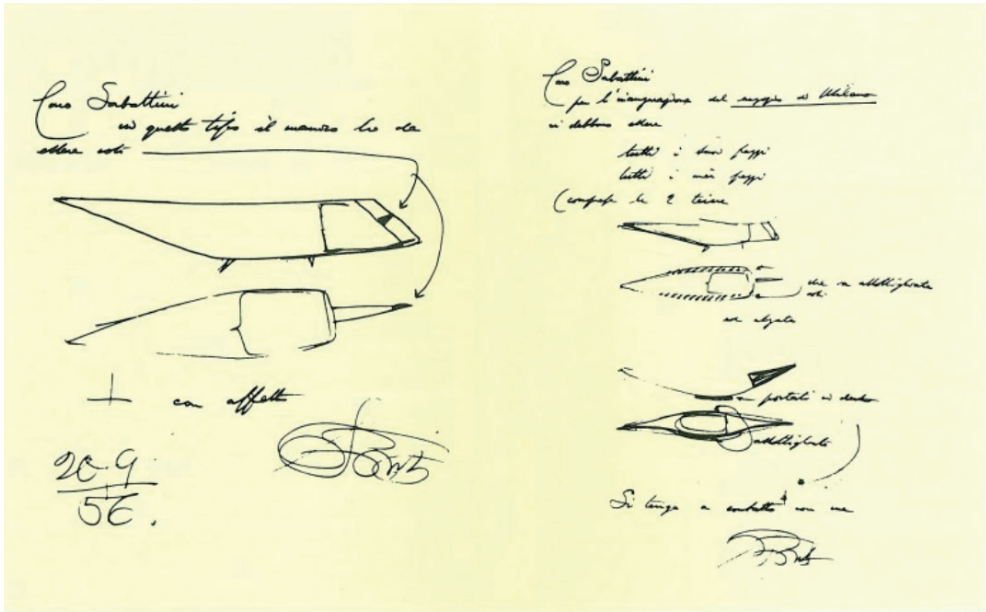 Caro Sabattini
in questo tipo il manico ha da
essere così
con affetto
Ponti
20 9
56.
Caro Sabattini
per l'inaugurazione del negozio di Milano
vi debbono essere
tutti i suoi pezzi
tutti i miei pezzi
(comprese le 2 teiere
che va assottigliata
così
ed alzata
portati in dentro
assottigliato
Si tenga a contatto con me
Ponti